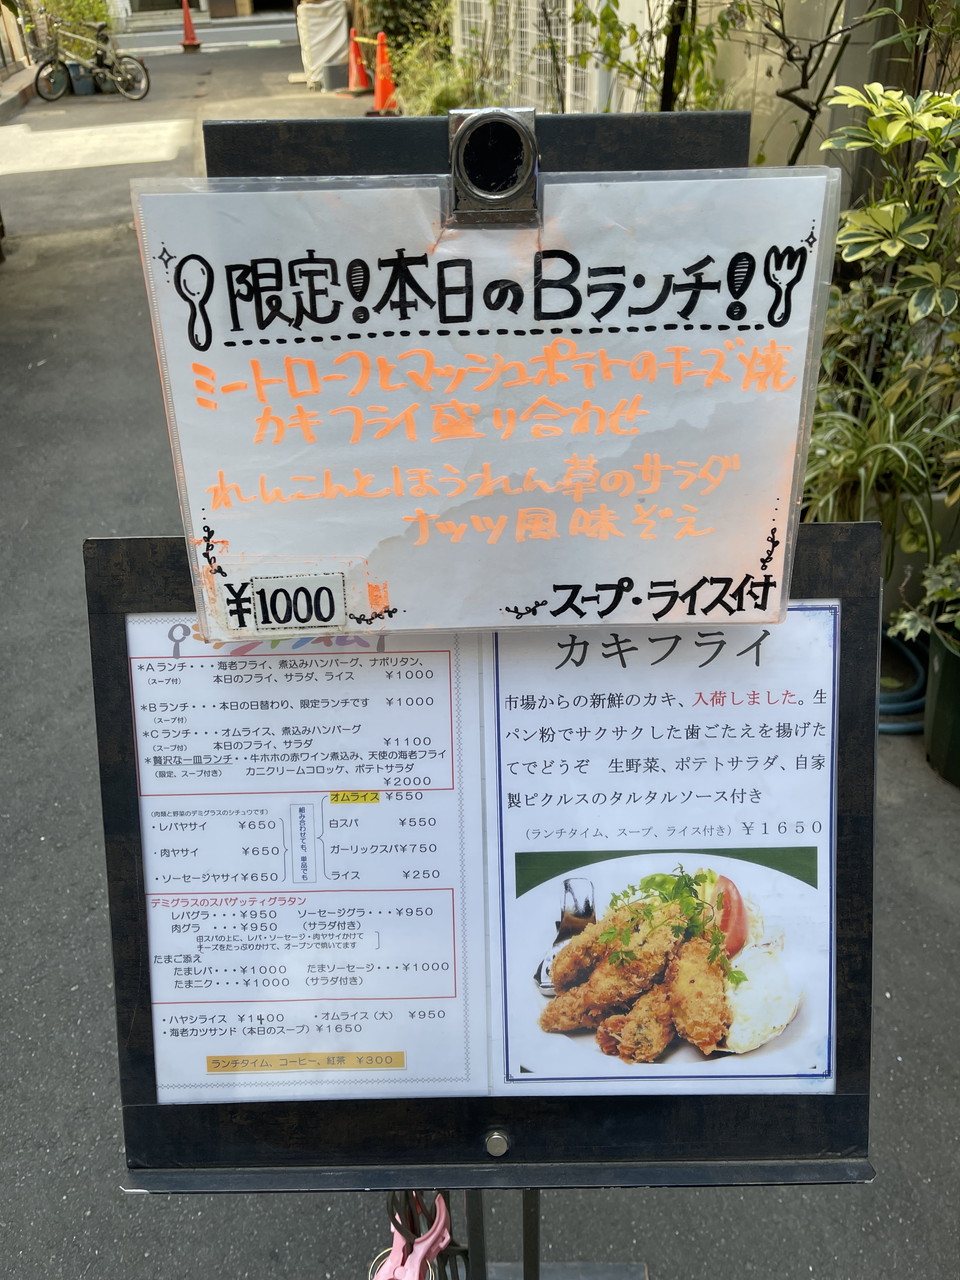 限定!本日のBランチ!
ミートローフとマッシュポテトのチーズ焼
カキフライ盛り合わせ
れんこんとほうれん草のサラダ
ナッツ風味ぞえ
¥1000
スープ・ライス付
*Aランチ・・・海老フライ、煮込みハンバーグ、ナポリタン、
(スープ付) 本日のフライ、サラダ、ライス ¥1000
*Bランチ・・・本日の日替わり、限定ランチです ¥1000
(スープ付)
*Cランチ・・・オムライス、煮込みハンバーグ
(スープ付) 本日のフライ、サラダ ¥1100
*贅沢な一皿ランチ・・牛ホホの赤ワイン煮込み、天使の海老フライ
(限定、スープ付き) カニクリームコロッケ、ポテトサラダ
¥2000
(肉類と野菜のデミグラスのシチュウです)
・レバヤサイ ¥650
・肉ヤサイ ¥650
・ソーセージヤサイ¥650
組み合わせても、単品でも
オムライス ¥550
白スパ ¥550
ガーリックスパ¥750
ライス ¥250
デミグラスのスパゲッティグラタン
レバグラ・・・¥950 ソーセージグラ・・・¥950
肉グラ ・・・¥950 (サラダ付き)
白スパの上に、レバ・ソーセージ・肉ヤサイかけて
チーズをたっぷりかけて、オーブンで焼いてます
たまご添え
たまレバ・・・¥1000 たまソーセージ・・・¥1000
たまニク・・・¥1000 (サラダ付き)
・ハヤシライス ¥1400 ・オムライス(大) ¥950
・海老カツサンド(本日のスープ)¥1650
ランチタイム、コーヒー、紅茶 ¥300
カキフライ
市場からの新鮮のカキ、入荷しました。生
パン粉でサクサクした歯ごたえを揚げた
てでどうぞ 生野菜、ポテトサラダ、自家
製ピクルスのタルタルソース付き
(ランチタイム、スープ、ライス付き)¥1650